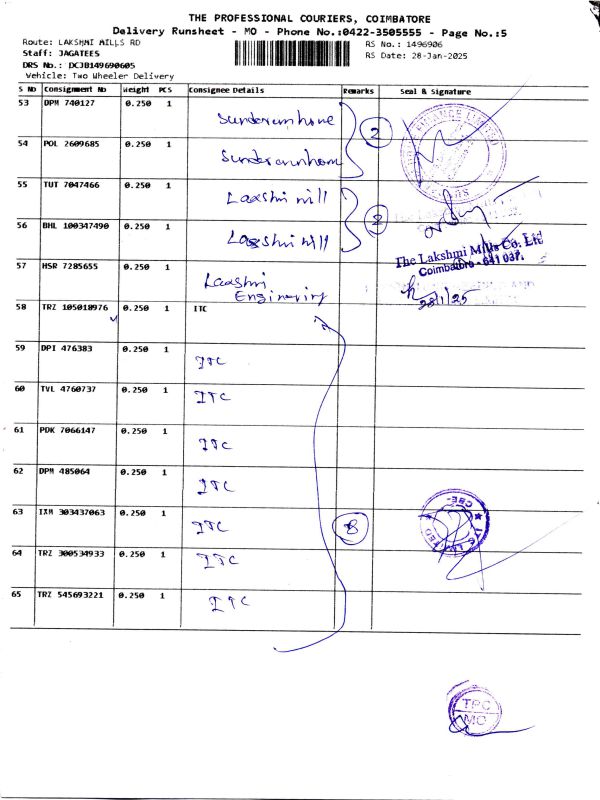 THE PROFESSIONAL COURIERS, COIMBATORE
Delivery Runsheet - MO - Phone No.:0422-3505555 - Page No.:5
Route: LAKSHMI MILLS RD
RS No. : 1496906
Staff: JAGATEES
RS Date: 28-Jan-2025
DRS No.: DCJB149690605
Vehicle: Two Wheeler Delivery
S No Consignment No Weight PCS Consignee Details Remarks Seal & Signature
53 DPM 740127 0.250 1
2
54 POL 2609685 0.250 1
55 TUT 7047466 0.250 1 Laxshmi mill
2
56 BHL 100347490 0.250 1 Laxshmi mill
The Lakshmi Mills Co. Ltd
Coimbatore - 641 037.
57 HSR 7285655 0.250 1 Laxshmi
28/1/25
58 TRZ 105018976 0.250 1 ITC
59 DPI 476383 0.250 1 ITC
60 TVL 4760737 0.250 1 ITC
61 PDK 7066147 0.250 1 ITC
62 DPM 485064 0.250 1 ITC
63 IXM 303437063 0.250 1 ITC
8
64 TRZ 300534933 0.250 1 ITC
65 TRZ 545693221 0.250 1 ITC
TPC
MO